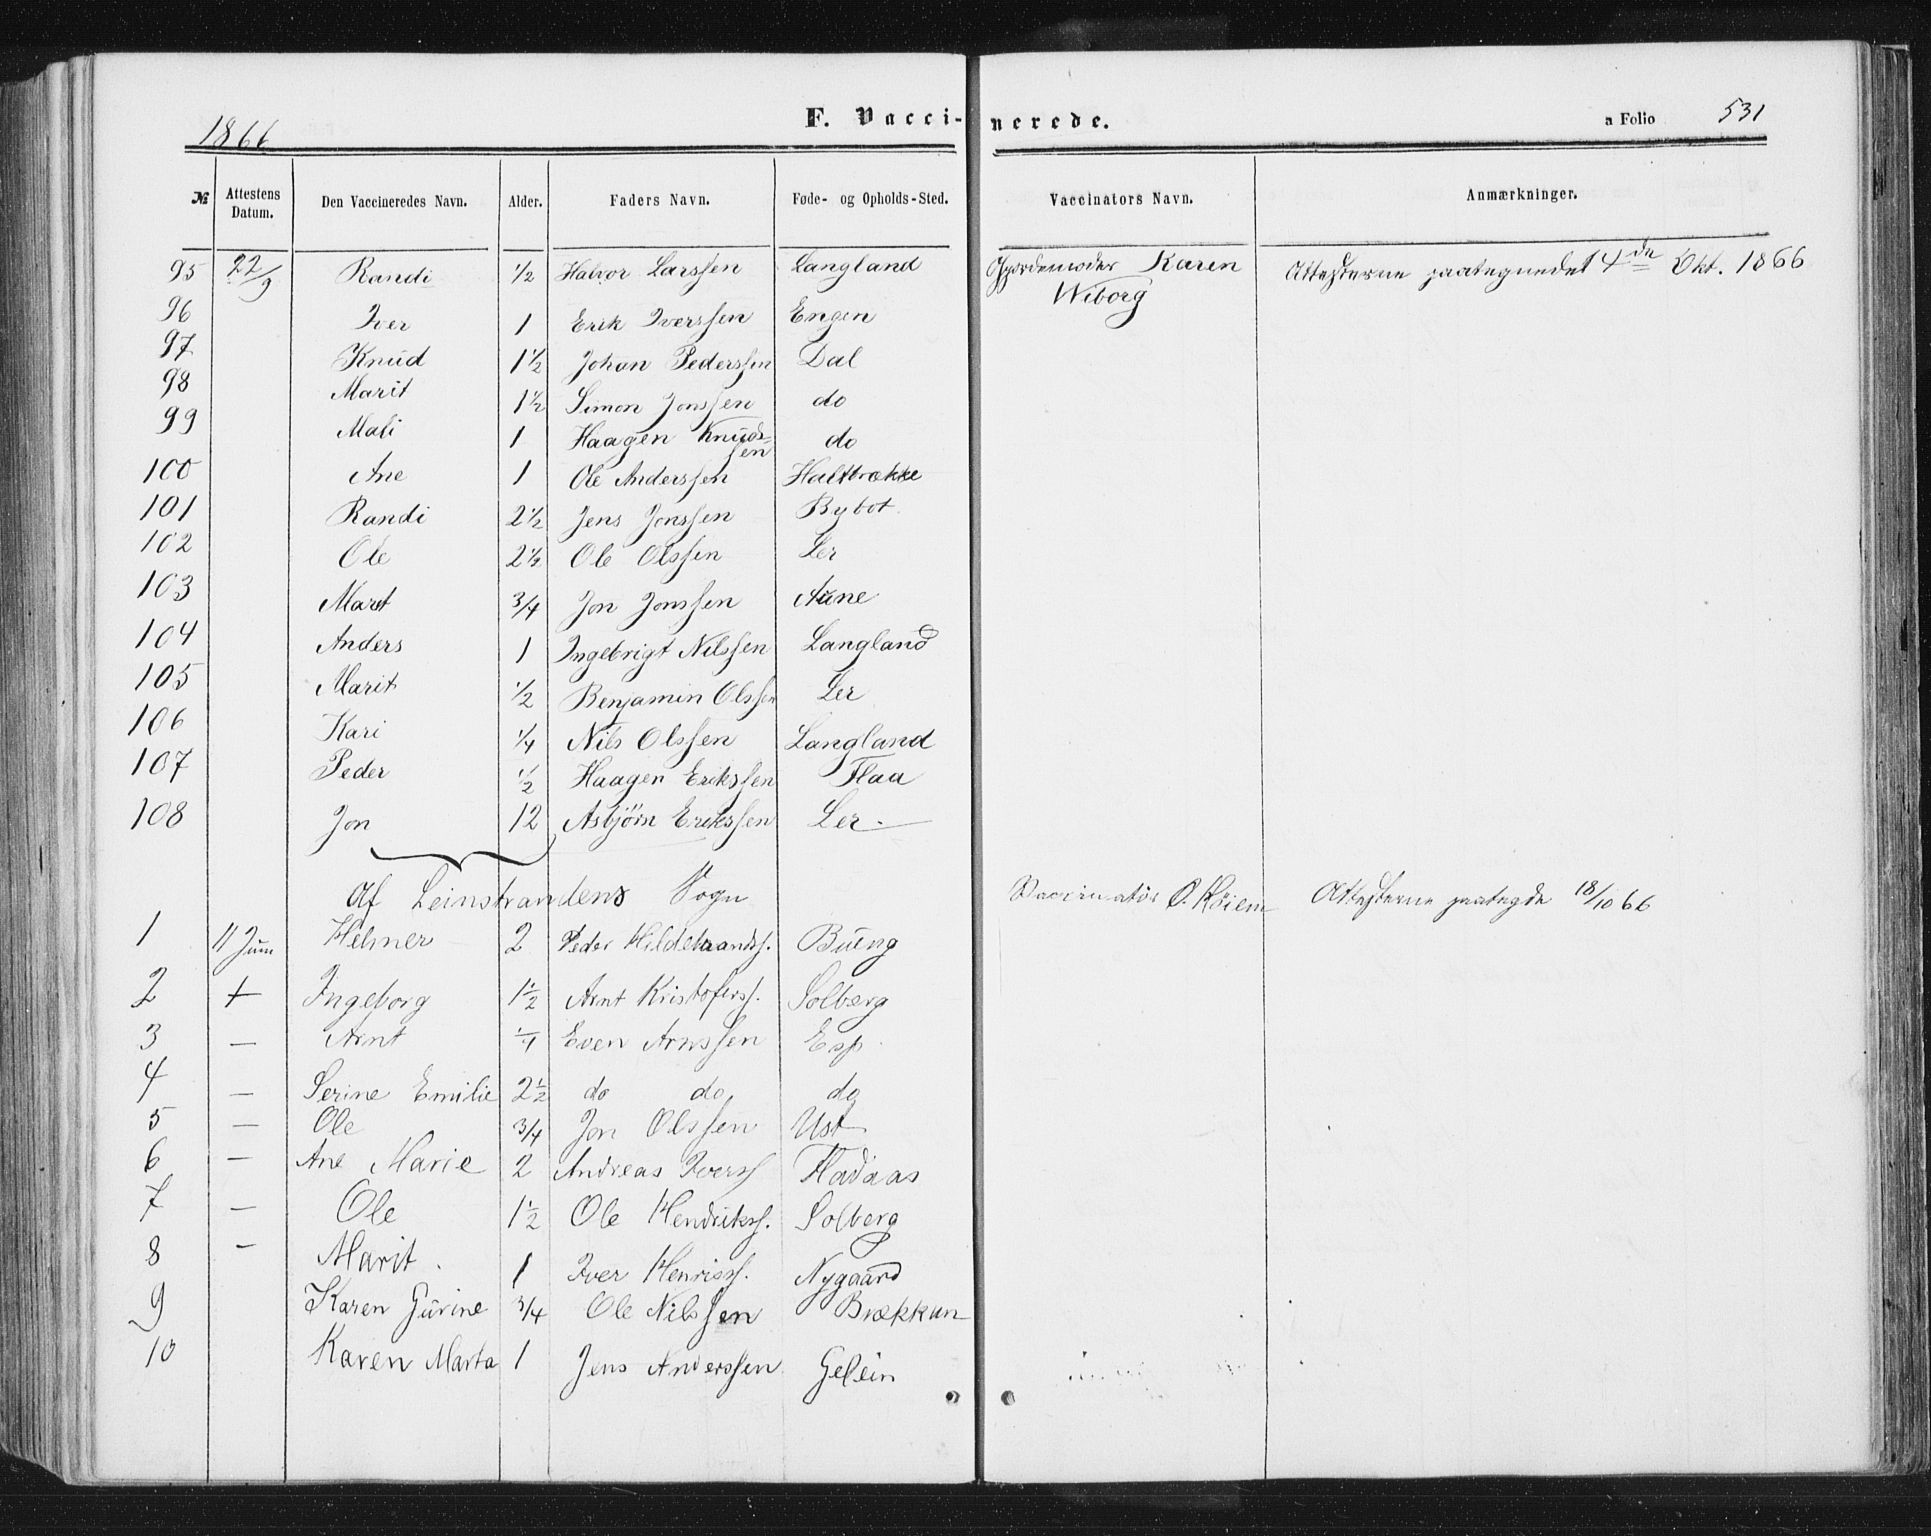 1866
F. Vaccinerede.
a Folio 531
№ Attestens Datum. Den Vaccineredes Navn. Alder. Faders Navn. Føde- og Opholds-Sted. Vaccinators Navn. Anmærkninger.
95 22/9 Randi 1/2 Halvor Larssen Langland Gjordemoder Karen Wiborg Attesterne paategnedes 4de Okt. 1866
96 Iver 1 Erik Iverssen Engen
97 Knud 1 1/2 Johan Pederssen Dal
98 Marit 1 1/2 Simon Jonssen do
99 Mali 1 Haagen Knudssen do
100 Ane 1 Ole Anderssen Haltbrække
101 Randi 2 1/2 Jens Jonssen Bybot
102 Ole 2 1/2 Ole Olssen Ler
103 Maret 3/4 Jon Jonssen Aune
104 Anders 1 Ingebrigt Nilssen Langland
105 Marit 1/2 Benjamin Olssen Ler
106 Kari 1/4 Nils Olssen Langland
107 Peder 1/2 Haagen Erikssen Flaa
108 Jon 12 Asbjörn Erikssen Ler
Af Leinstrandens Sogn Vaccinatör O. Attesterne paategde 18/10 66
1 11 Juni Helmer 2 Peder Hildebrandss. Bueng
2 + Ingeborg 1 1/2 Arnt Kristoferss. Solberg
3 — Arnt 1/4 Even Arnssen Esp
4 — Serine Emilie 2 1/2 do do do
5 — Ole 3/4 Jon Olssen Ust
6 — Ane Marie 2 Andreas Iverss Fladaas
7 — Ole 1 1/2 Ole Hendrikss. Solberg
8 — Marit. 1 Iver Henriss. Nygaard
9 Karen Gurine 3/4 Ole Nilssen Brækkan
10 Karen Marta 1 Jens Anderssen Gelein